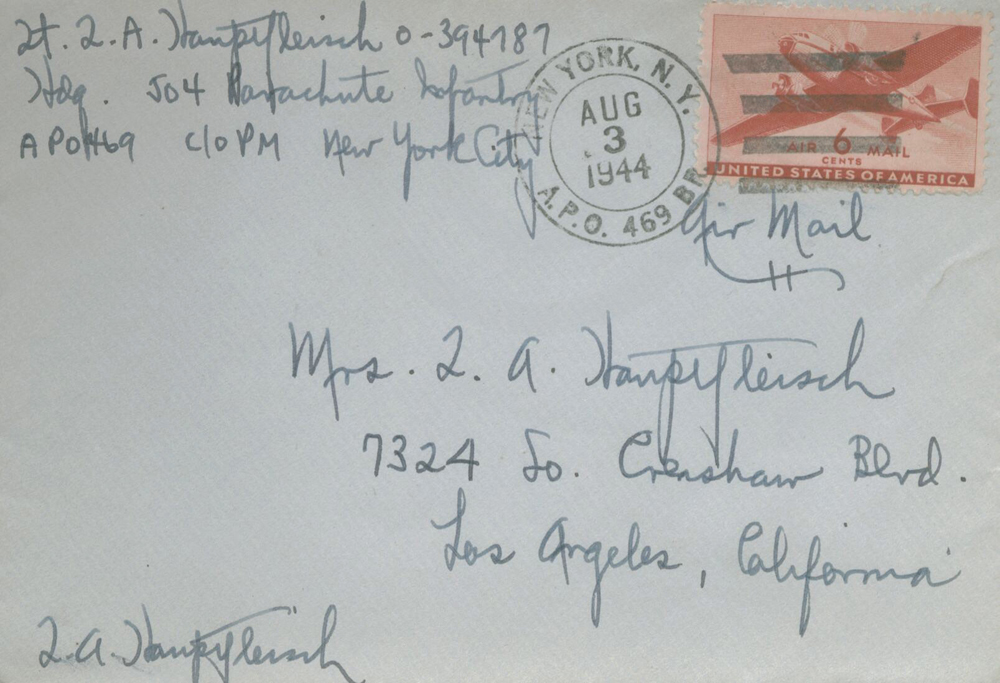 Lt. L. A. Hauptfleisch O-394787
Hdq. 504 Parachute Infantry
APO 469 C/O PM New York City
NEW YORK, N.Y.
AUG
3
1944
A.P.O. 469 BR.
AIR 6 MAIL
CENTS
UNITED STATES OF AMERICA
Air Mail
Mrs. L. A. Hauptfleisch
7324 So. Crenshaw Blvd.
Los Angeles, California
L.A. Hauptfleisch